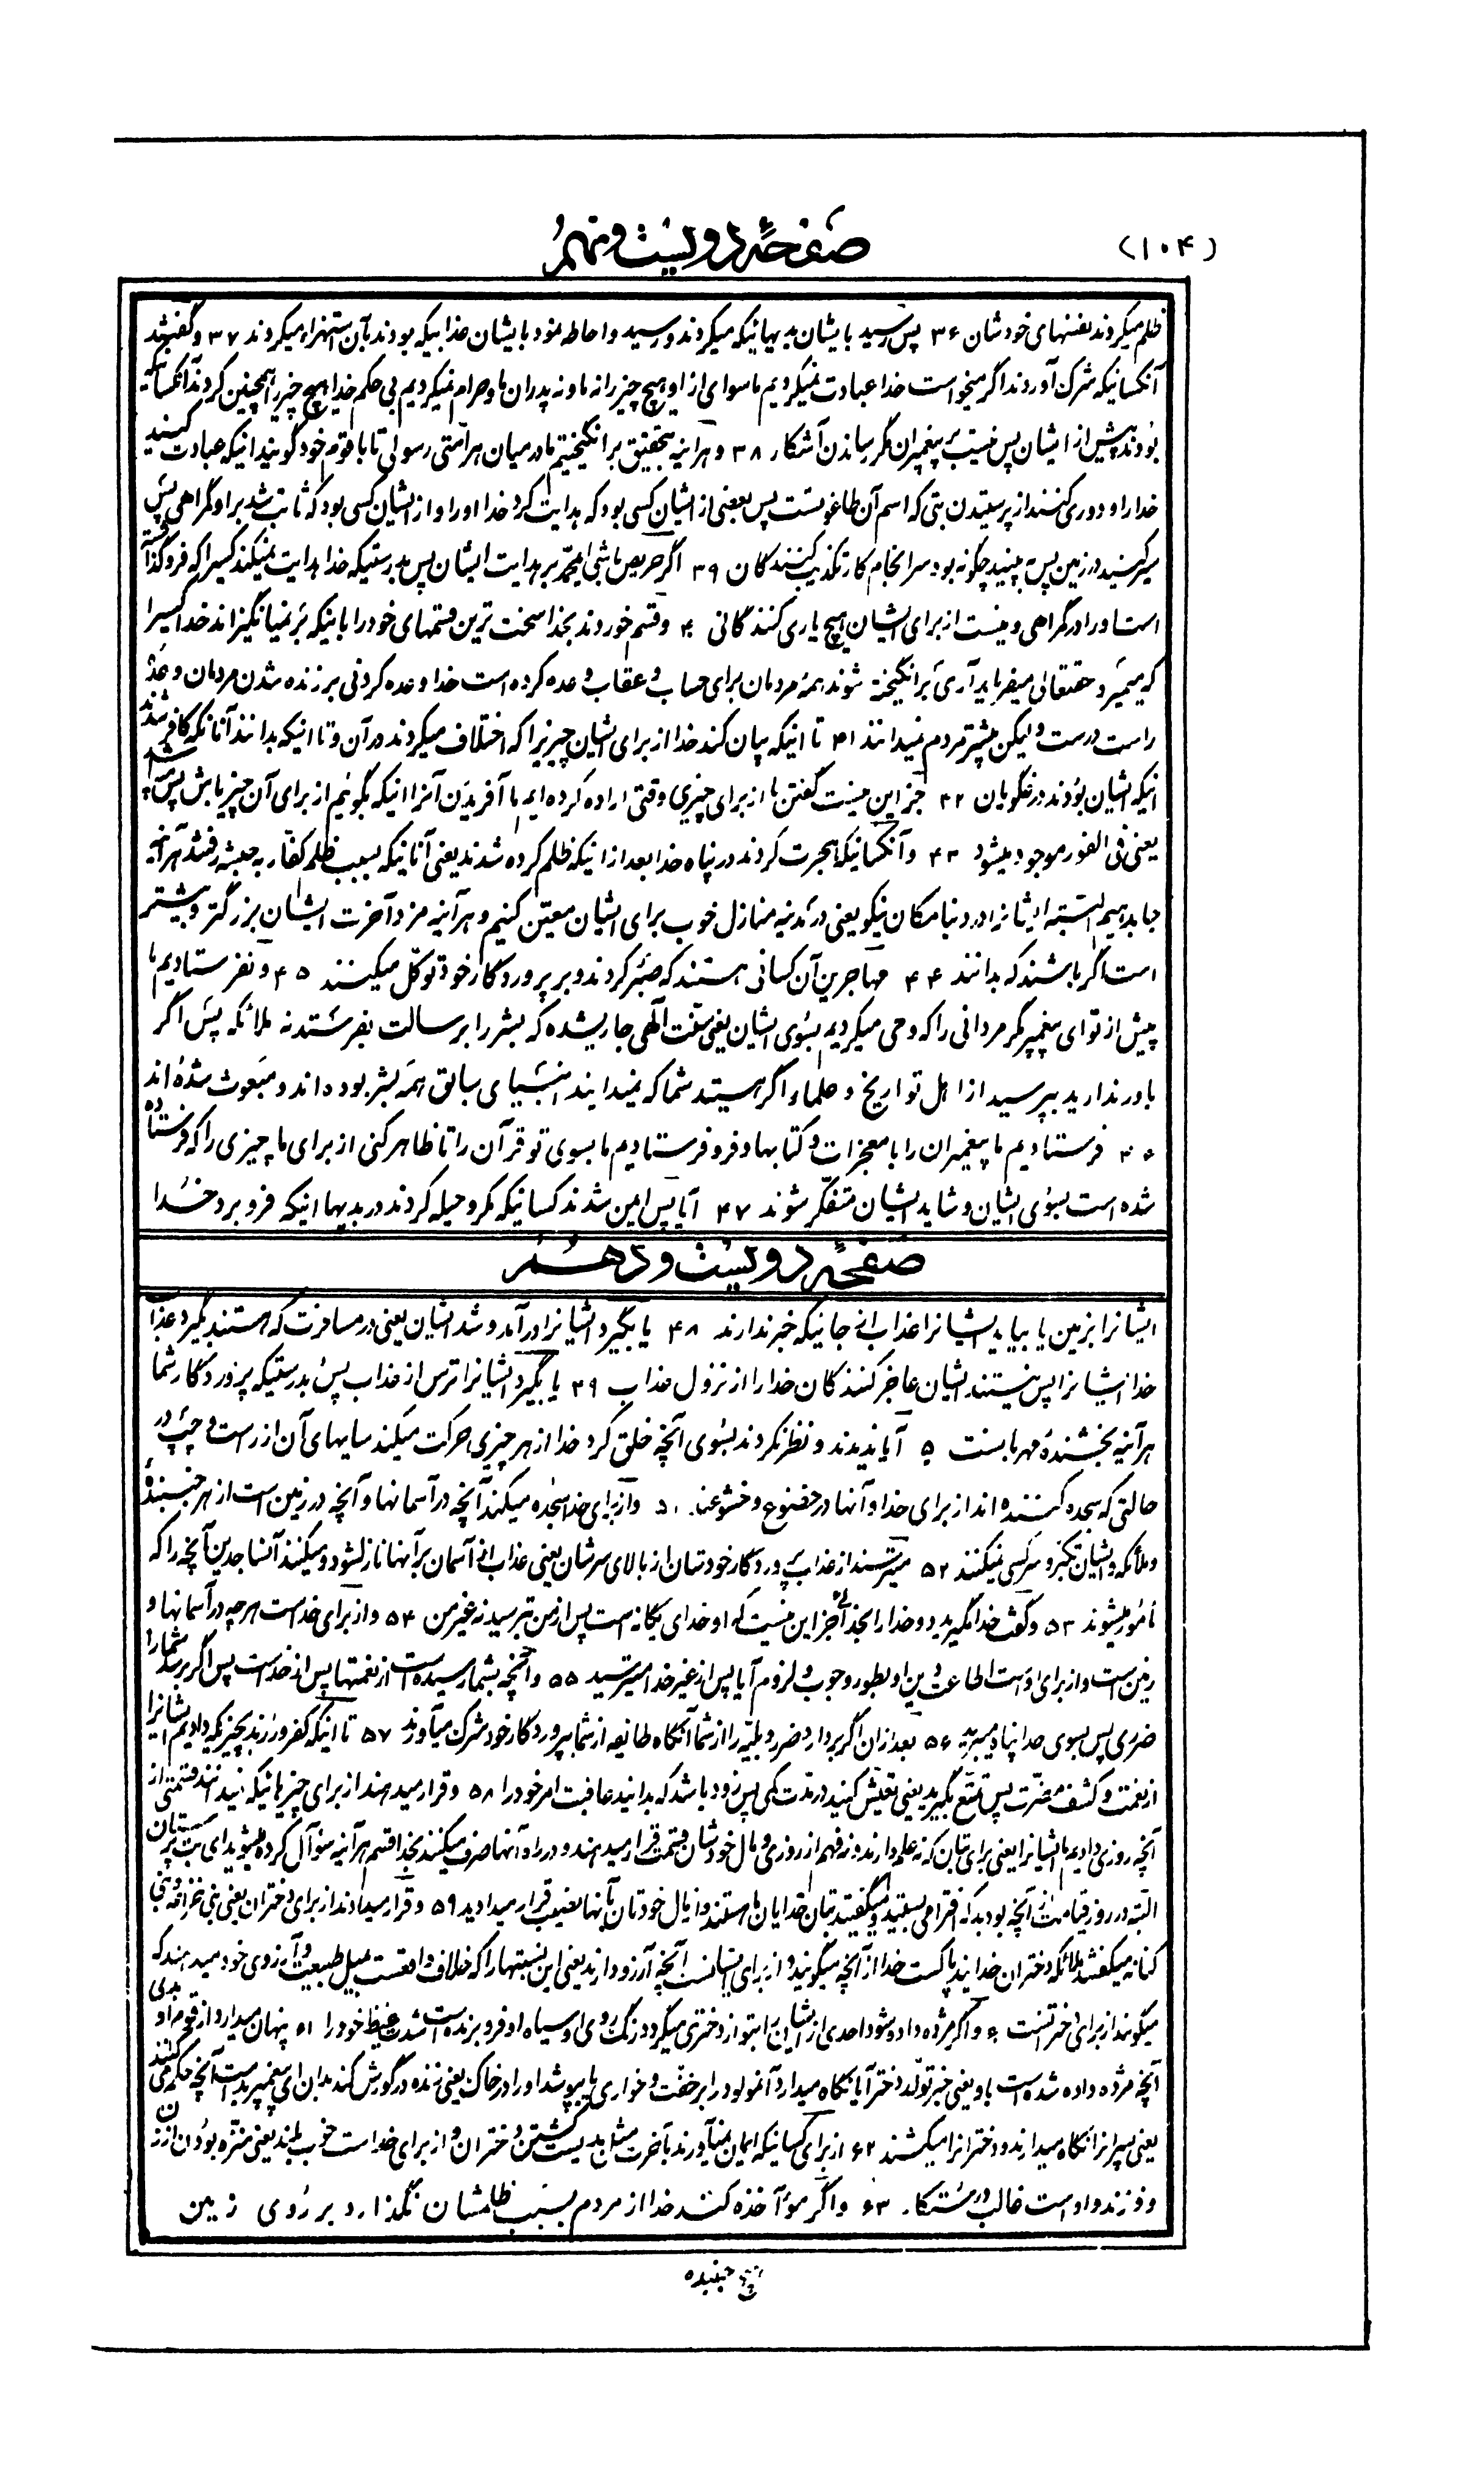 (۱۰۴)
صفحهٔ دویست و نهم
ظلم میکردند بنفسهای خودشان ۳۶ پس رسید بایشان بدیهائیکه میکردند و رسید و احاطه نمود بایشان عذابیکه بودند بآن استهزاء میکردند ۳۷ و گفتند
آنکسانیکه شرک آوردند اگر میخواست خدا عبادت نمیکردیم ما سوای از او هیچ چیز را نه ما و نه پدران ما و حرام نمیکردیم بی حکم خدا هیچ چیز را همچنین کردند آنکسانیکه
بودند پیش از ایشان پس نیست بر پیغمبران مگر رساندن آشکار ۳۸ و هر اینه بتحقیق برانگیختیم ما در میان هر امتی رسولی تا با قوم خود گویند اینکه عبادت کنید
خدا را و دوری کنند از پرستیدن بتی که اسم آن طاغوتست پس بعضی از ایشان کسی بود که هدایت کرد خدا او را و از ایشان کسی بود که ثابت شد بر او گمراهی پس
سیر کنید در زمین پس ببینید چگونه بود سرانجام کار تکذیب کنندگان ۳۹ اگر حریص باشی ایمحمد بر هدایت ایشان پس بدرستیکه خدا هدایت نمیکند کسیرا که فروگذاشته
است او را در گمراهی و نیست از برای ایشان هیچ یاری کنندگانی ۴۰ و قسم خوردند بخدا سخت ترین قسمهای خود را باینکه بر نمیانگیزاند خدا کسیرا
که میمیرد حقتعالی میفرماید آری برانگیخته شوند همهٔ مردمان برای حساب و عقاب و عده کرده است خدا وعده کردنی بر زنده شدن مردمان وعدهٔ
راست درست ولیکن بیشتر مردم نمیدانند ۴۱ تا اینکه بیان کند خدا از برای ایشان چیزیرا که اختلاف میکردند در آن و تا اینکه بدانند آنانکه کافر شدند
اینکه ایشان بودند دروغگویان ۴۲ جز این نیست گفتن ما از برای چیزی وقتی اراده کرده ایم ما آفریدن آنرا اینکه بگوئیم از برای آن چیز باش پس میباشد
یعنی فی الفور موجود میشود ۴۳ و آنکسانیکه هجرت کردند در پناه خدا بعد از اینکه ظلم کرده شدند یعنی آنانیکه بسبب ظلم کفار به حبشه رفتند هر آینه
جا بدهیم البته ایشانرا در دنیا مکان نیکو یعنی در مدینه منازل خوب برای ایشان معین کنیم و هر آینه مزد آخرت ایشان بزرگتر و بیشتر
است اگر باشند که بدانند ۴۴ مهاجرین آن کسانی هستند که صبر کردند و بر پروردگار خود توکل میکنند ۴۵ و نفرستادیم ما
پیش از تو ای پیغمبر مگر مردانی را که وحی میکردیم بسوی ایشان یعنی سنت الهی جاریشده که بشر را برسالت بفرستد نه ملائکه پس اگر
باور ندارید بپرسید از اهل تواریخ و علماء اگر هستید شما که نمیدانید انبیای سابق همه بشر بوده اند و مبعوث شده اند
۴۶ فرستادیم ما پیغمبران را با معجزات و کتابها و فرو فرستادیم ما بسوی تو قرآن را تا ظاهر کنی از برای ما چیزی را که فرستاده
شده است بسوی ایشان و شاید ایشان متفکر شوند ۴۷ آیا پس ایمن شدند کسانیکه مکر و حیله کردند در بدیها اینکه فرو برد خدا
صفحهٔ دویست و دهم
ایشانرا بزمین یا بیاید ایشانرا عذاب از جائیکه خبر ندارند ۴۸ یا بگیرد ایشانرا در آمد و شد ایشان یعنی در مسافرت که هستند بگیرد عذاب
خدا ایشانرا پس نیستند ایشان عاجز کنندگان خدا را از نزول عذاب ۴۹ یا بگیرد ایشانرا ترس از عذاب پس بدرستیکه پروردگار شما
هر آینه بخشندهٔ مهربانست ۵۰ آیا ندیدند و نظر نکردند بسوی آنچه خلق کرد خدا از هر چیزی حرکت میکند سایهای آن از راست و چپ در
حالتی که سجده کننده اند از برای خدا و آنها در خضوع و خشوعند ۵۱ و از برای خدا سجده میکند آنچه در آسمانها و آنچه در زمین است از هر جنبندهٔ
و ملائکه و ایشان تکبر و سرکشی نمیکنند ۵۲ میترسند از عذاب پروردگار خودشان از بالای سرشان یعنی عذاب از آسمان بر آنها نازلشود و میکنند آنساجدین آنچه را که
مأمور میشوند ۵۳ و گفت خدا نگیرید دو خدا را بخدائی جز این نیست که او خدای یگانه است پس از من بترسید نه غیر من ۵۴ و از برای خداست هر چه در آسمانها و
زمین است و از برای اوست اطاعت و دین او بطور وجوب و لزوم آیا پس از غیر خدا میترسید ۵۵ و آنچه بشما رسیده است از نعمتها پس از خداست پس اگر برسد شما را
ضرری پس بسوی خدا پناه میبرید ۵۶ بعد از ان اگر بردارد ضرر و بلیه را از شما آنگاه طایفه از شما بپروردگار خود شرک میآورند ۵۷ تا اینکه کفر ورزند بچیزیکه دادیم ایشانرا
از نعمت و کشف مضرت پس تمتع بگیرید یعنی تعیش کنید در مدت کمی پس زود باشد که بدانید عاقبت امر خود را ۵۸ و قرار میدهند از برای چیزهائیکه نمیدانند قسمتی از
آنچه روزی دادیم ما ایشانرا یعنی برای بتان که نه علم دارند و نه فهم از روزی و مال خودشان قسمت قرار میدهند و در راه آنها صرف میکنند بخدا قسم هر آینه سؤال کرده میشوید ای بت پرستان
البته در روز قیامت از آنچه بودید که افترا می بستید و میگفتید بتان خدایان ما هستند و از مال خودتان بآنها نصیب قرار میدادید ۵۹ و قرار میدادند از برای خدا دختران یعنی بنی خزاعه و بنی
کنانه میگفتند ملائکه دختران خدایند پاکست خدا از آنچه میگویند و از برای ایشانست آنچه آرزو دارند یعنی این نسبتها را که خلاف واقعست بمیل طبیعت و آرزوی خود میدهند که
میگویند از برای او دختر است ۶۰ و اگر مژده داده شود احدی از ایشان را بتولد دختری میگردد رنگ روی او سیاه و او فرو برنده است شدت غیظ خود را ۶۱ پنهان میدارد از قوم او بدی
آنچه مژده داده شده است باو یعنی خبر تولد دختر آیا نگاه میدارد آنمولود را بر خفت و خواری یا بپوشد او را در خاک یعنی زنده در گورش کند بدان ای پیغمبر بد است آنچه حکم می کنند
یعنی پسرانرا نگاه میدارند و دخترانرا میکشند ۶۲ از برای کسانیکه ایمان نمیآورند بآخرت مثل بدیست کشتن دختران و از برای خداست خوب بلند یعنی منزه بودن از زن
و فرزند و اوست غالب درستکار ۶۳ و اگر مؤاخذه کند خدا از مردم بسبب ظلمشان نگذارد بر روی زمین
هیچ جنبنده